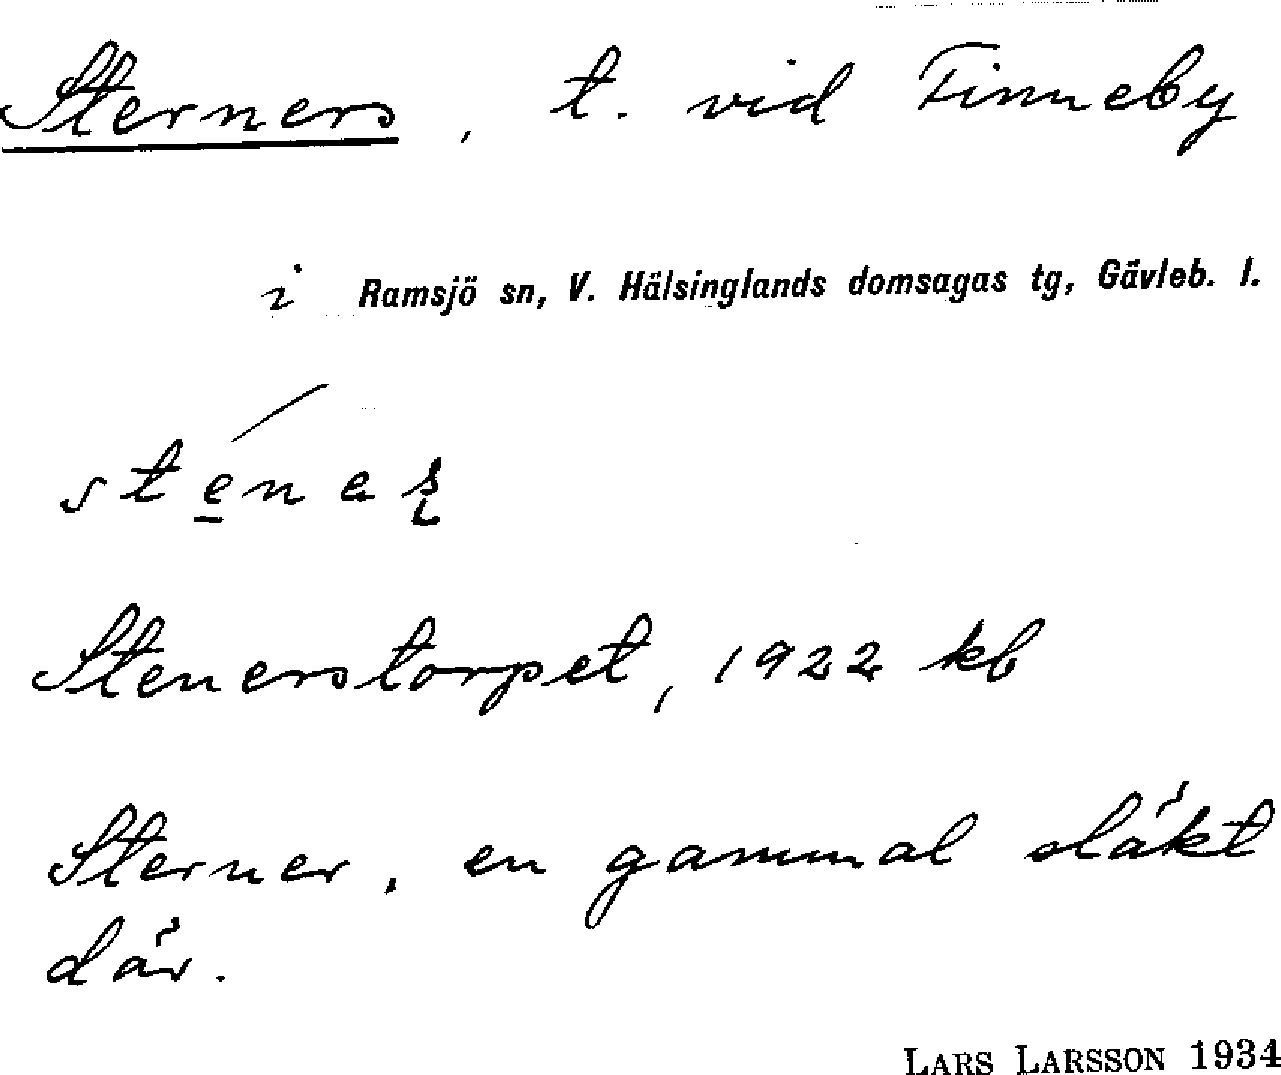 Sterners, t. vid Finneby
i Ramsjö sn, V. Hälsinglands domsagas tg, Gävleb. l.
Stenerstorpet, 1922 kb
Sterner, en gammal släkt
där.
LARS LARSSON 1934